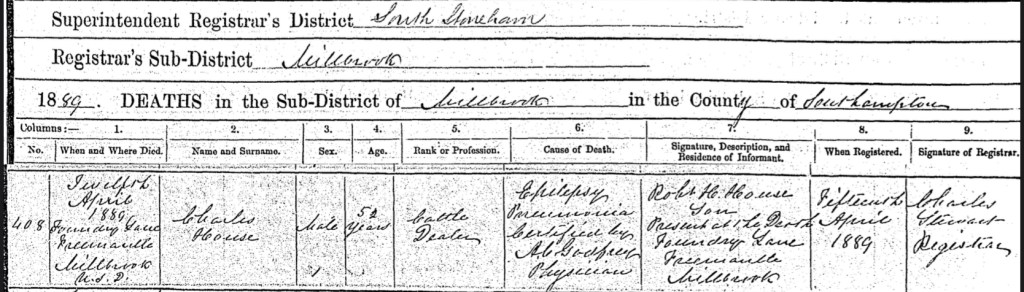 Superintendent Registrar's District South Stoneham
Registrar's Sub-District Millbrook
1889. DEATHS in the Sub-District of Millbrook in the County of Southampton
Columns:— 1. 2. 3. 4. 5. 6. 7. 8. 9.
No. When and Where Died. Name and Surname. Sex. Age. Rank or Profession. Cause of Death. Signature, Description, and Residence of Informant. When Registered. Signature of Registrar.
408
Twelfth
April
1889
Foundry Lane
Freemantle
Millbrook
U.S.D.
Charles
House
Male
52
Years
Cattle
Dealer
Epilepsy
Pneumonia
Certified by
Godfrey
Physician
Robt H. House
Son
Present at the Death
Foundry Lane
Freemantle
Millbrook
Fifteenth
April
1889
Charles
Stewart
Registrar